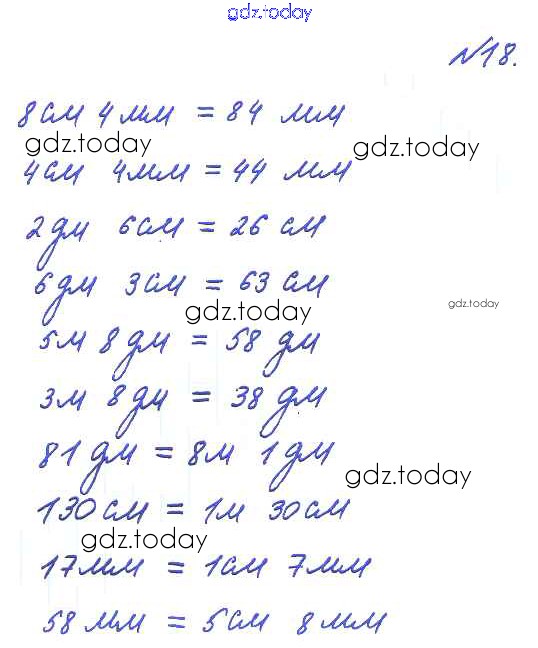 gdz.today
№18.
8см 4мм = 84 мм
gdz.today
gdz.today
4см 4мм = 44 мм
2дм 6см = 26 см
6дм 3см = 63 см
gdz.today
gdz.today
5м 8дм = 58 дм
3м 8дм = 38 дм
81 дм = 8м 1дм
gdz.today
130см = 1м 30см
gdz.today
17мм = 1см 7мм
58 мм = 5см 8мм